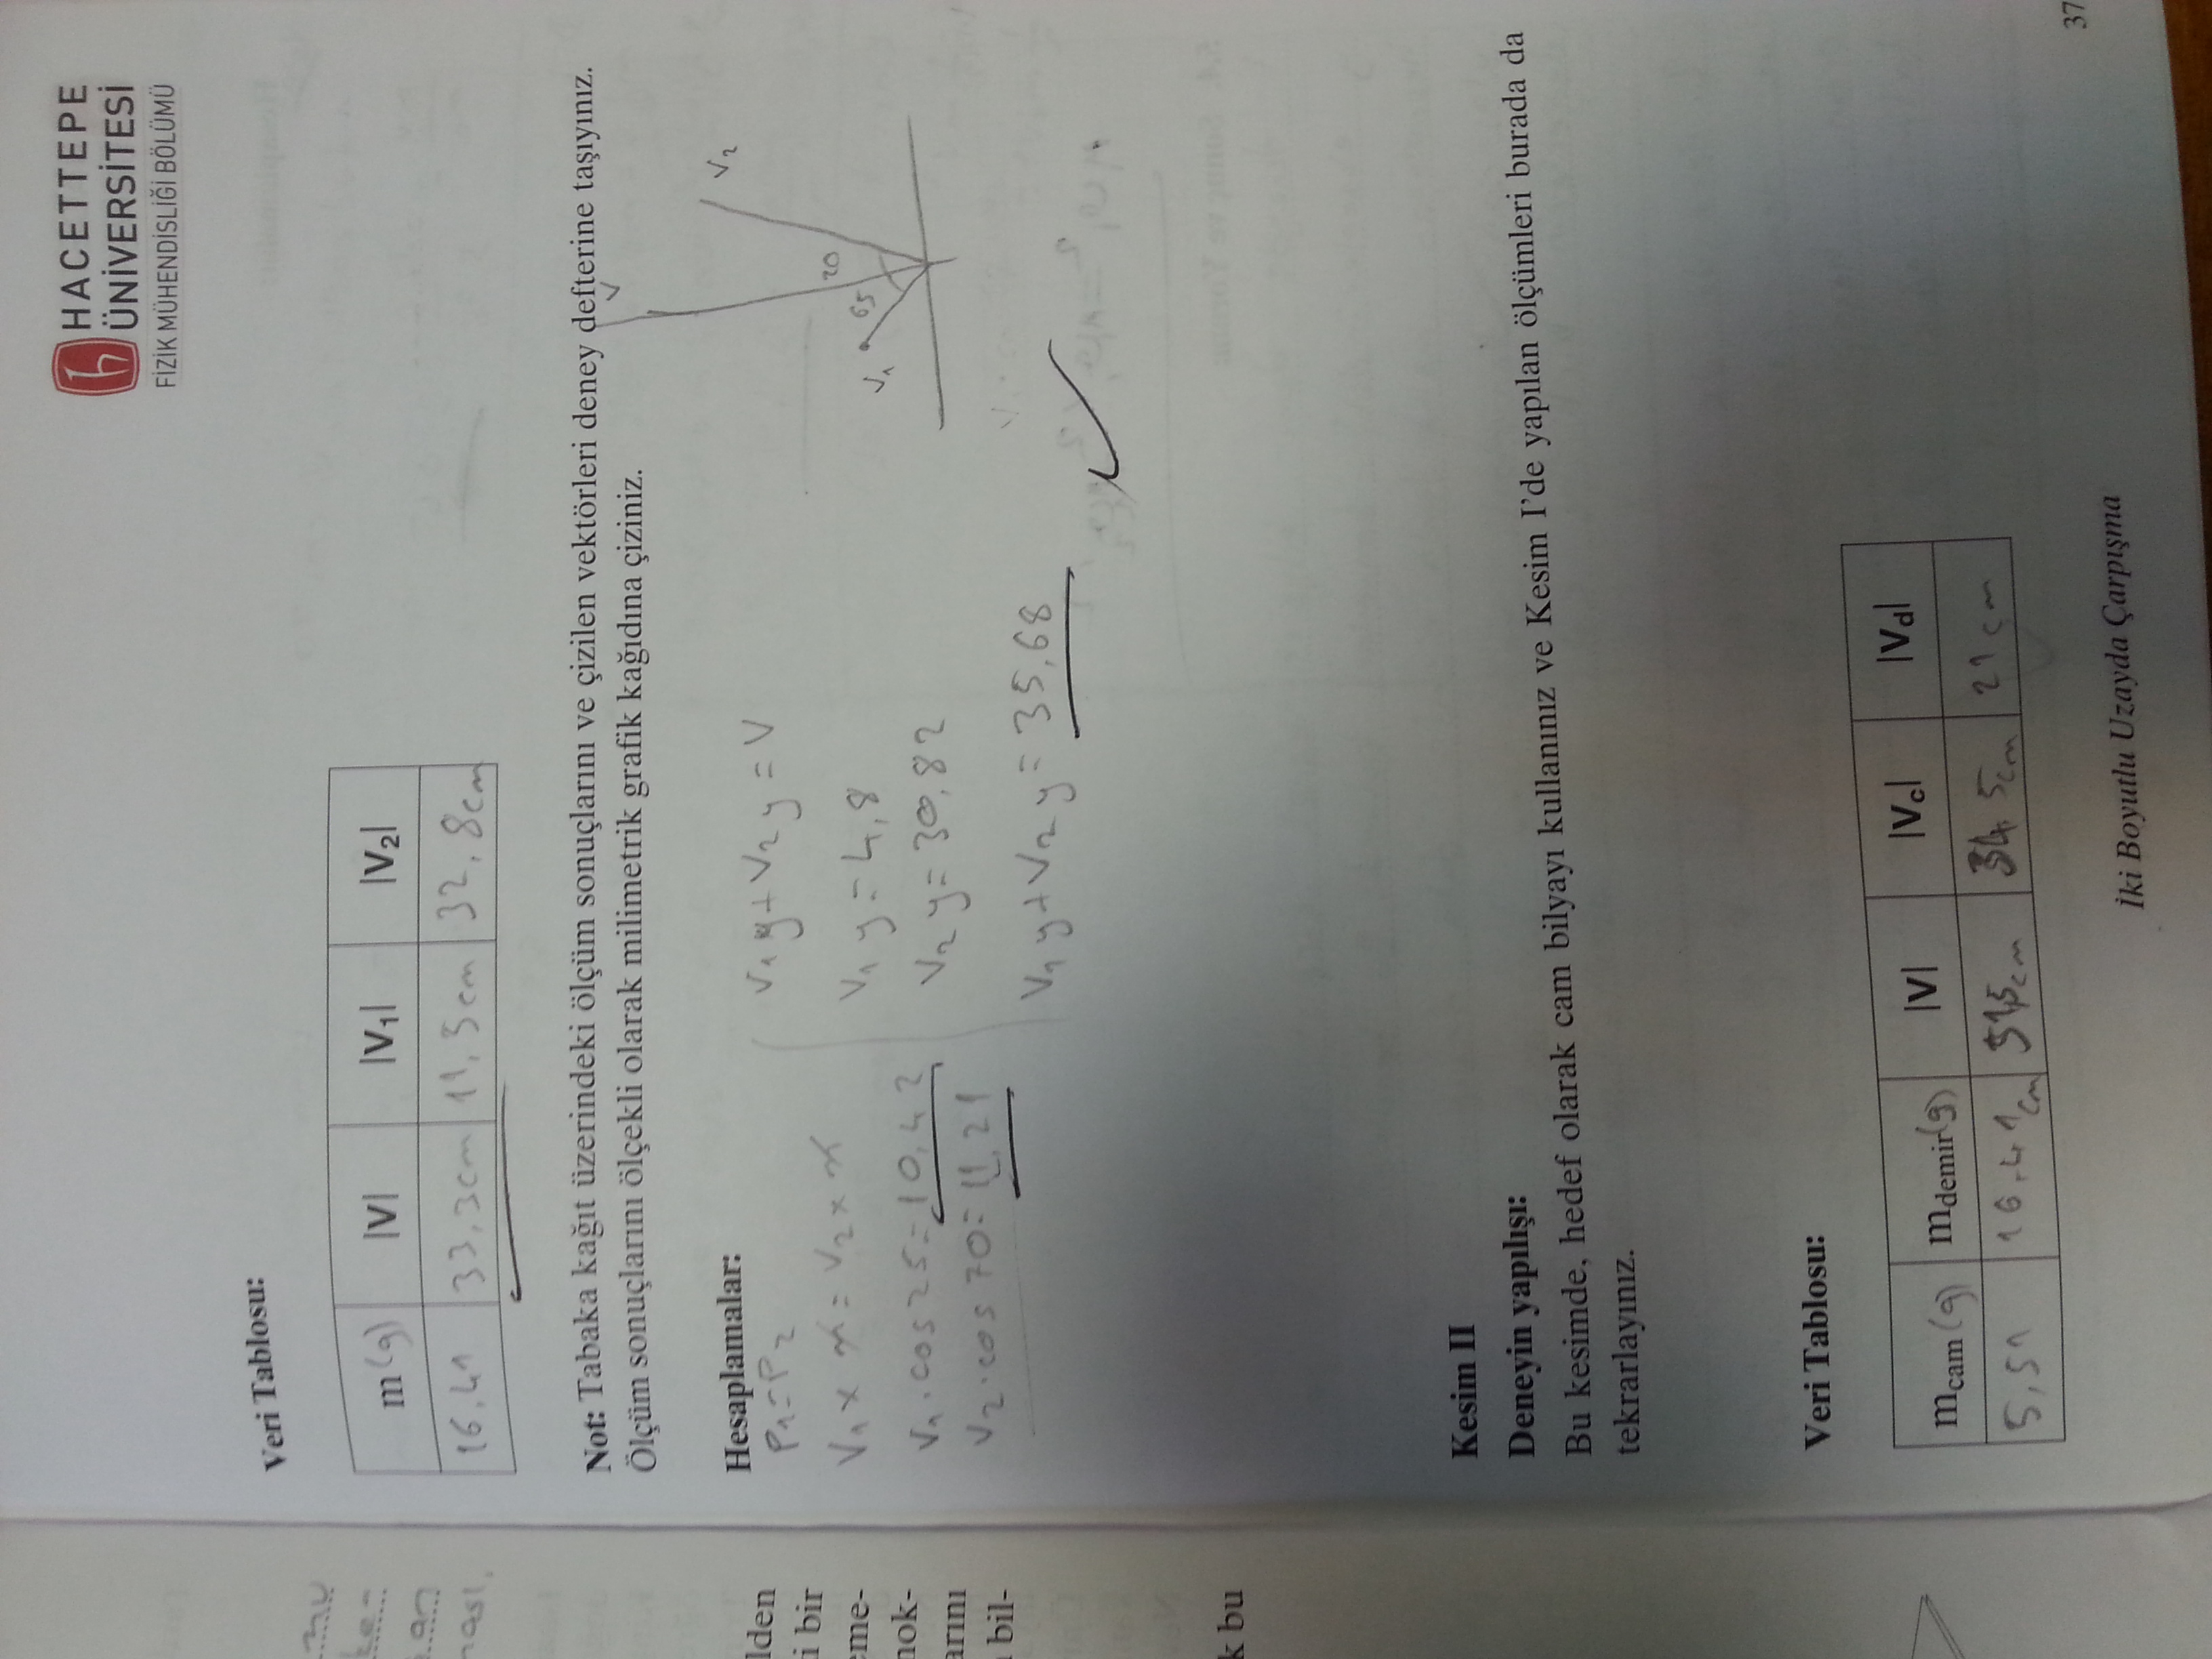 HACETTEPE
ÜNİVERSİTESİ
FİZİK MÜHENDİSLİĞİ BÖLÜMÜ
Veri Tablosu:
m(g) |V| |V₁| |V₂|
16,41 33,3cm 11,5cm 32,8cm
Not: Tabaka kağıt üzerindeki ölçüm sonuçlarını ve çizilen vektörleri deney defterine taşıyınız.
Ölçüm sonuçlarını ölçekli olarak milimetrik grafik kağıdına çiziniz.
V
V₂
20
65
V₁
Hesaplamalar:
P₁=P₂
V₁ x m = V₂ x m
V₁.cos25=10,42
V₂.cos 70=11,21
V₁y+V₂y=V
V₁y=4,8
V₂y=30,82
V₁y+V₂y=35,68
Kesim II
Deneyin yapılışı:
Bu kesimde, hedef olarak cam bilyayı kullanınız ve Kesim I'de yapılan ölçümleri burada da
tekrarlayınız.
Veri Tablosu:
mcam(g) mdemir(g) |V| |Vc| |Vd|
5,51 16,41cm 51,5cm 34,5cm 21cm
37
İki Boyutlu Uzayda Çarpışma
lden
i bir
eme-
nok-
arını
bil-
k bu